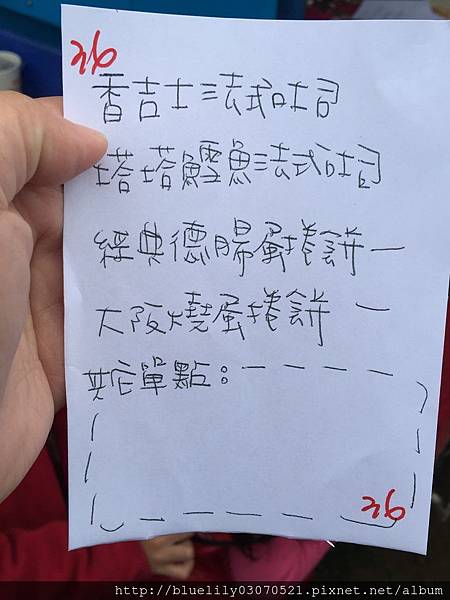 36
香吉士法式吐司
塔塔鱈魚法式吐司
經典德腸蛋捲餅一
大阪燒蛋捲餅 一
其它單點：
36
http://bluelily03070521.pixnet.net/album